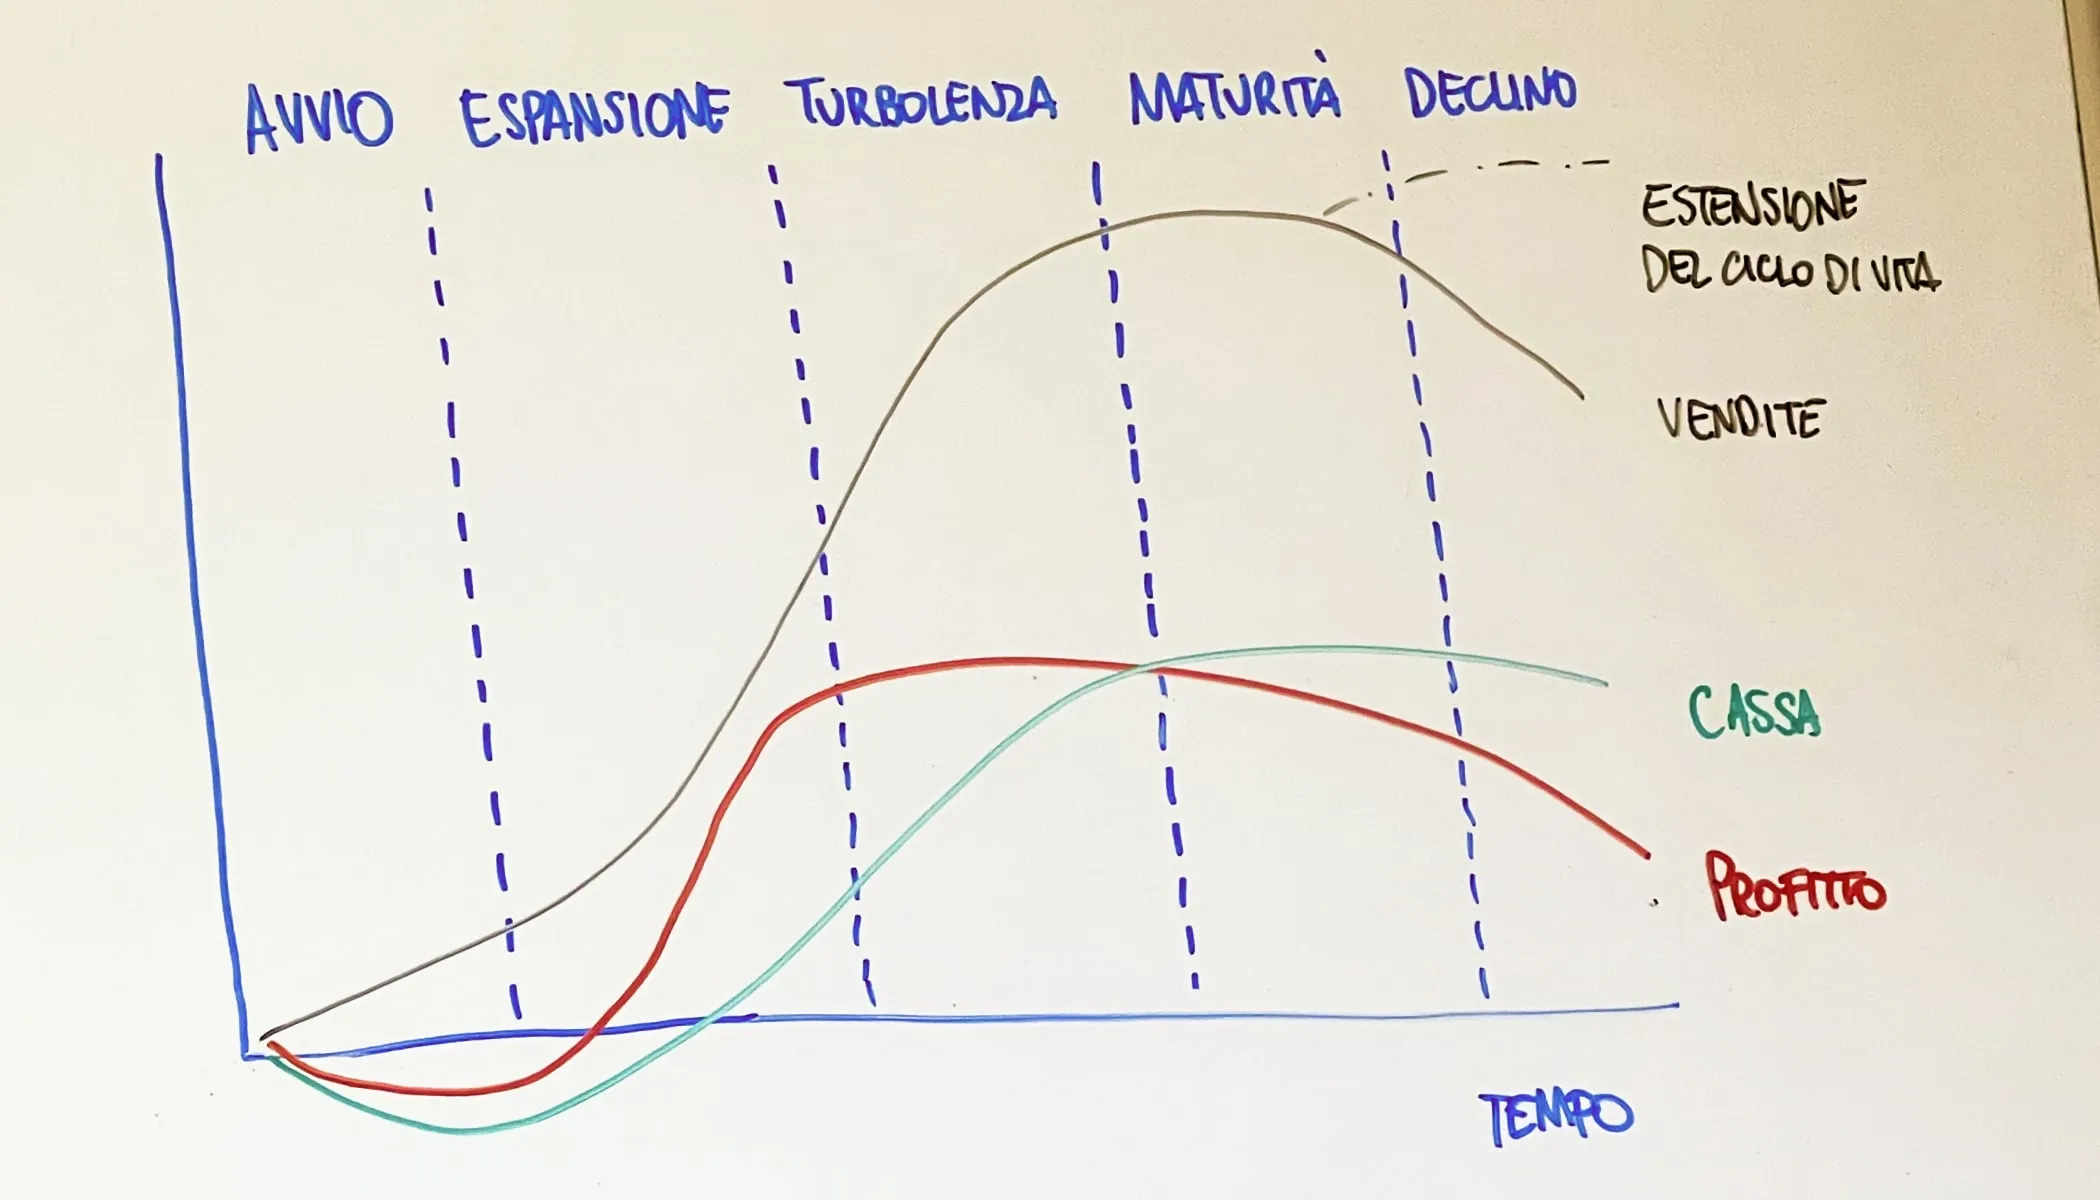 AVVIO ESPANSIONE TURBOLENZA MATURITÀ DECLINO
ESTENSIONE
DEL CICLO DI VITA
VENDITE
CASSA
PROFITTO
TEMPO